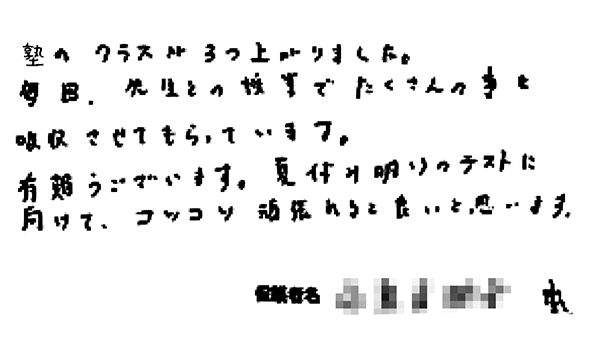 塾の クラスが 3つ上がりました。
毎日、先生との授業でたくさんの事を
吸収させてもらっています。
有難うございます。夏休み明けのテストに
向けて、コツコツ頑張れると良いと思います。
保護者名 様